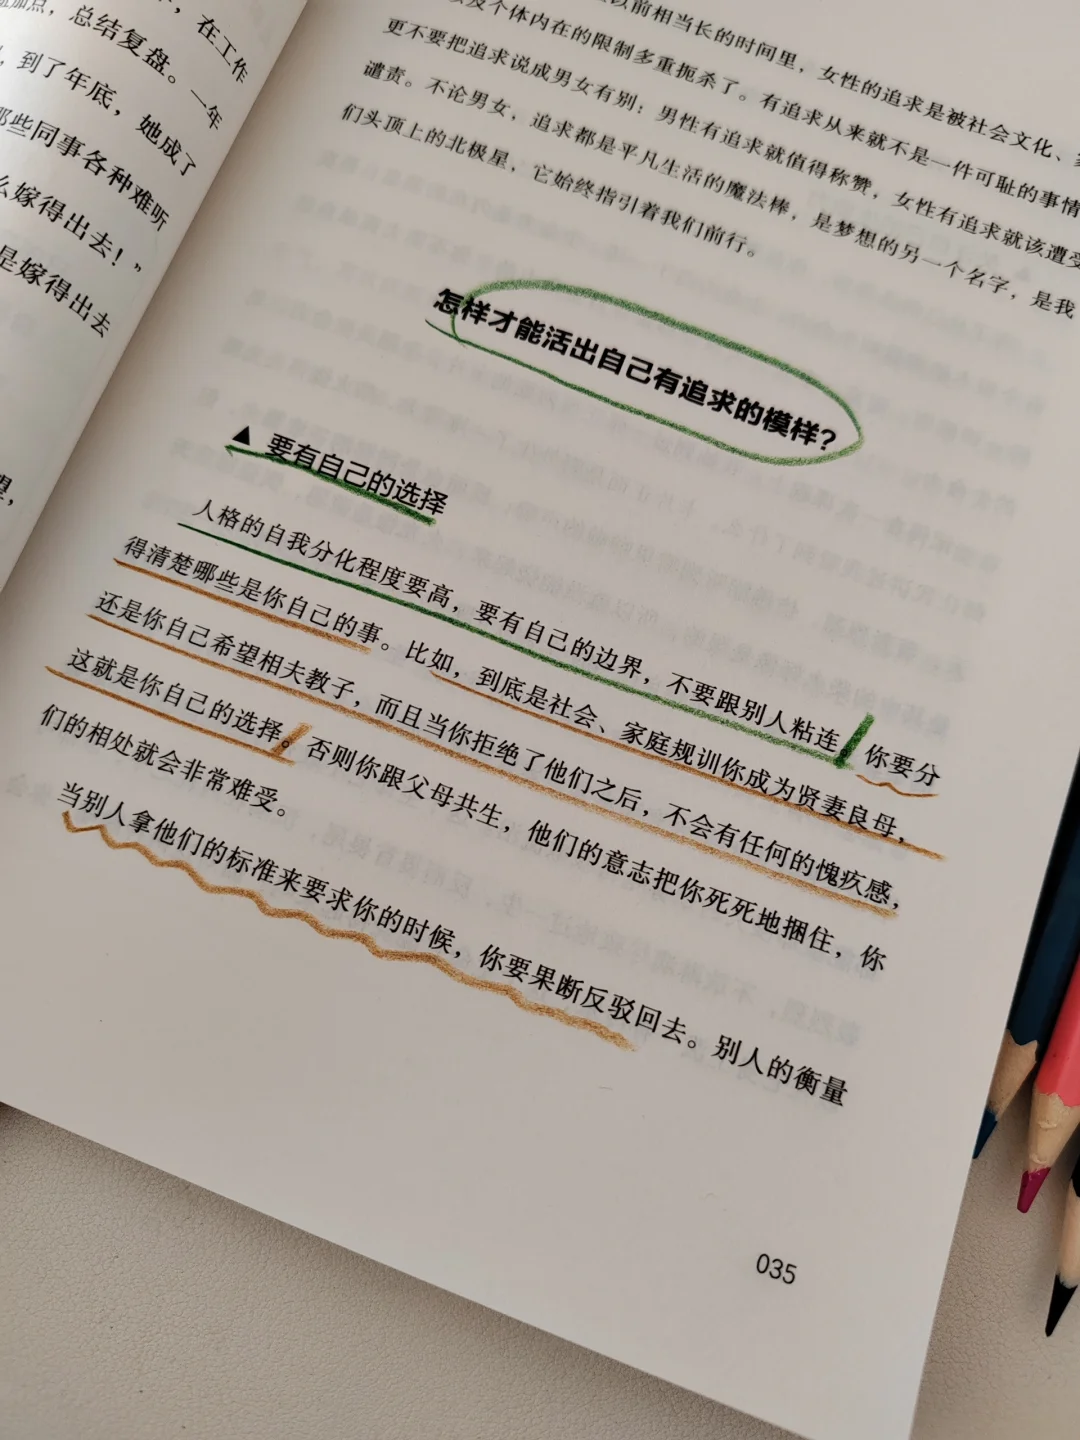 ，在工作
加点，总结复盘。一年
，到了年底，她成了
那些同事各种难听
么嫁得出去！”
是嫁得出去
以前相当长的时间里，女性的追求是被社会文化、
及个体内在的限制多重扼杀了。有追求从来就不是一件可耻的事情
更不要把追求说成男女有别：男性有追求就值得称赞，女性有追求就该遭受
谴责。不论男女，追求都是平凡生活的魔法棒，是梦想的另一个名字，是我
们头顶上的北极星，它始终指引着我们前行。
怎样才能活出自己有追求的模样？
▲ 要有自己的选择
人格的自我分化程度要高，要有自己的边界，不要跟别人粘连，你要分
得清楚哪些是你自己的事。比如，到底是社会、家庭规训你成为贤妻良母，
还是你自己希望相夫教子，而且当你拒绝了他们之后，不会有任何的愧疚感，
这就是你自己的选择。否则你跟父母共生，他们的意志把你死死地捆住，你
们的相处就会非常难受。
当别人拿他们的标准来要求你的时候，你要果断反驳回去。别人的衡量
035